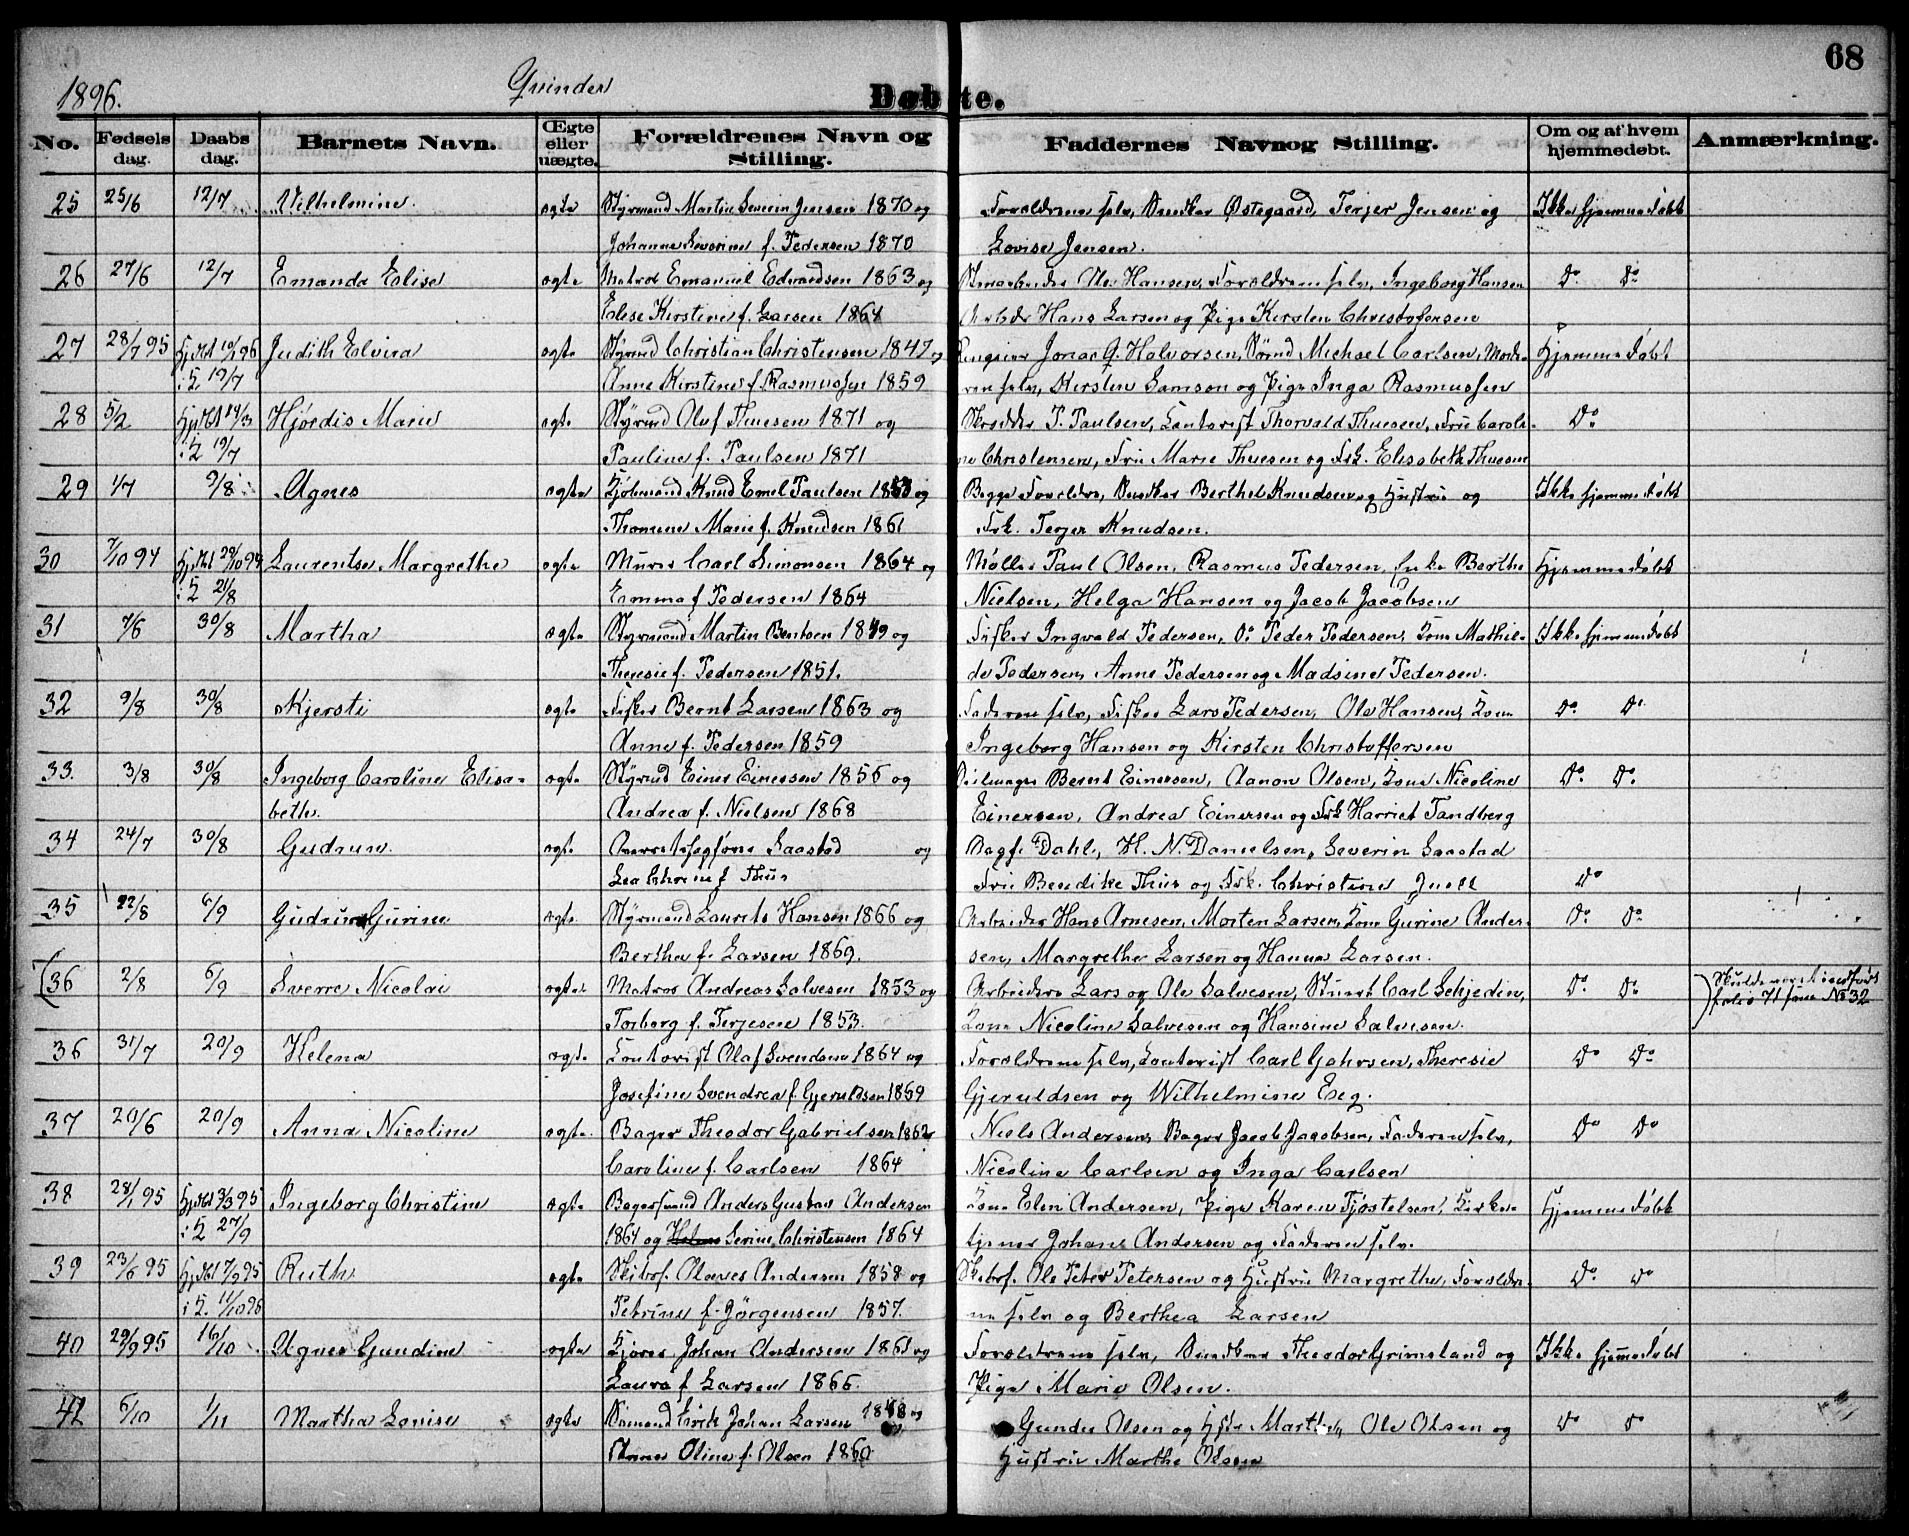 68
1896. Qvinder Døbte.
No. Fødsels dag. Daabs dag. Barnets Navn. Œgte eller uægte. Forældrenes Navn og Stilling. Faddernes Navn og Stilling. Om og af hvem hjemmedøbt. Anmærkning.
25 25/6 12/7 Vilhelmine. ægte Styrmand Martin Severin Jensen 1870 og Forældrene selv, Østegaard, Terjer Jensen og Ikke hjemmedøbt
Johanne Severine f. Pedersen 1870 Lovise Jensen.
26 27/6 12/7 Emanda Elise ægte Matros Emanuel Edvardsen 1863 og Hansen, Forældrene selv, Ingeborg Hansen Do Do
Elise Kirstine f. Larsen 1864 Arbeider Hans Larsen og Pige Kirsten Christofersen
27 28/7 95 Hjdbt 10/1 96 Judith Elvira ægte Styrmd Christian Christensen 1847 og Jonas G. Halvorsen, Sømd Michael Carlsen, Mode- Hjemmedøbt
i K 19/7 Anne Kirstine f. Rasmussen 1859 ren selv, Kirsten Samson og Pige Inga Rasmussen
28 5/2 Hjdbt 14/3 Hjørdis Marie ægte Styrmd Oluf Thuesen 1871 og Skrædder P. Paulsen, Kontorist Thorvald Thuesen, Fru Caroli- Do
i K 19/7 Pauline f. Paulsen 1871 ne Christensen, Fru Marie Thuesen og Frk. Elisabeth Thuesen
29 1/7 9/8 Agnes ægte Kjøbmand Knud Emil Paulsen 1853 og Begge Forældre, Berthel Knudsen og Hustru og Ikke hjemmedøbt
Thomine Marie f. Knudsen 1861 Frk. Terjer Knudsen.
30 7/10 94 Hjdbt 29/10 94 Laurentse Margrethe ægte Murer Carl Simonsen 1864 og Møller Paul Olsen, Rasmus Pedersen, Enke Berthe Hjemmedøbt
i K 21/8 Emma f. Pedersen 1864 Nielsen, Helga Hansen og Jacob Jacobsen
31 7/6 30/8 Martha ægte Styrmand Martin Bentsen 1849 og Fisker Ingvald Pedersen, Do Peder Pedersen, Kone Mathil- Ikke hjemmedøbt
Theresie f. Pedersen 1851. de Pedersen, Anne Pedersen og Madsine Pedersen.
32 9/8 30/8 Kjersti ægte Fisker Bernt Larsen 1863 og Faderen selv, Fisker Lars Pedersen, Ole Hansen, Kone Do Do
Anne f. Pedersen 1859 Ingeborg Hansen og Kirsten Christoffersen
33. 3/8 30/8 Ingeborg Caroline Elisa- ægte Styrmd Einer Einersen 1856 og Seilmager Bernt Einersen, Aanon Olsen, Kone Nicoline Do Do
beth. Andrea f. Nielsen 1868 Einersen, Andrea Einersen og Frk Harriet Tandberg
34 24/7 30/8 Gudrun. ægte Overretssagfører Saastad og Bagf. Dahl, H. N. Danielsen, Severin Saastad
Lea Cathrine f Thiis Fru Bendikte Thiis og Frk. Christine Juell Do
35 22/8 6/9 Gudrun Gurine ægte Styrmand Laurits Hansen 1866 og Arbeider Hans Arnesen, Morten Larsen, Kone Gurine Ander- Do Do
Berthe f. Larsen 1869. sen, Margrethe Larsen og Hanna Larsen.
(36 2/8 6/9 Sverre Nicolai ægte Matros Andreas Salvesen 1853 og Arbeidere Lars og Ole Salvesen, Stuert Carl Schjedin, Do Do Skulde være indført
Torborg f. Terjesen 1853. Kone Nicoline Salvesen og Hansine Salvesen. folio 71 som No 32
36 31/7 20/9 Helena ægte Kontorist Olaf Svendsen 1864 og Forældrene selv, Kontorist Carl Gahrsen, Theresie Do Do
Josefine Svendrea f. Gjeruldsen 1869 Gjeruldsen og Wilhelmine Eeg.
37 20/6 20/9 Anna Nicoline ægte Bager Theodor Gabrielsen 1862 og Niels Andersen, Bager Jacob Jacobsen, Faderen selv, Do Do
Caroline f. Carlsen 1864 Nicoline Carlsen og Inga Carlsen
38 28/1 95 Hjdbt 3/3 95 Ingeborg Christine ægte Bagersvend Anders Gustav Andersen Kone Elen Andersen, Pige Karen Tjøstelsen, Kirke- Hjemmedøbt
i K 27/9 1864 og Serine Christensen 1864 tjener Johans Andersen og Faderen selv.
39 23/6 95 Hjdbt 7/9 95 Ruth ægte Skibsf. Olaves Andersen 1858 og Skibsf. Ole Peter Petersen og Hustru Margrethe, Forældre- Do Do
i K. 11/10 96 Petrine f. Jørgensen 1857. ne selv og Berthea Larsen
40 29/9 95 16/10 Agnes Gundine ægte Johan Andersen 1861 og Forældrene selv, Theodor Grimsland og Ikke hjemmedøbt
Laura f Larsen 1866. Pige Marie Olsen.
41 6/10 1/11 Martha Lovise ægte Sømand Johan Larsen og Gunder Olsen og Hstr Marthe, Ole Olsen og Do Do
Anne Oline f. Olsen 1860 Hustru Marthe Olsen